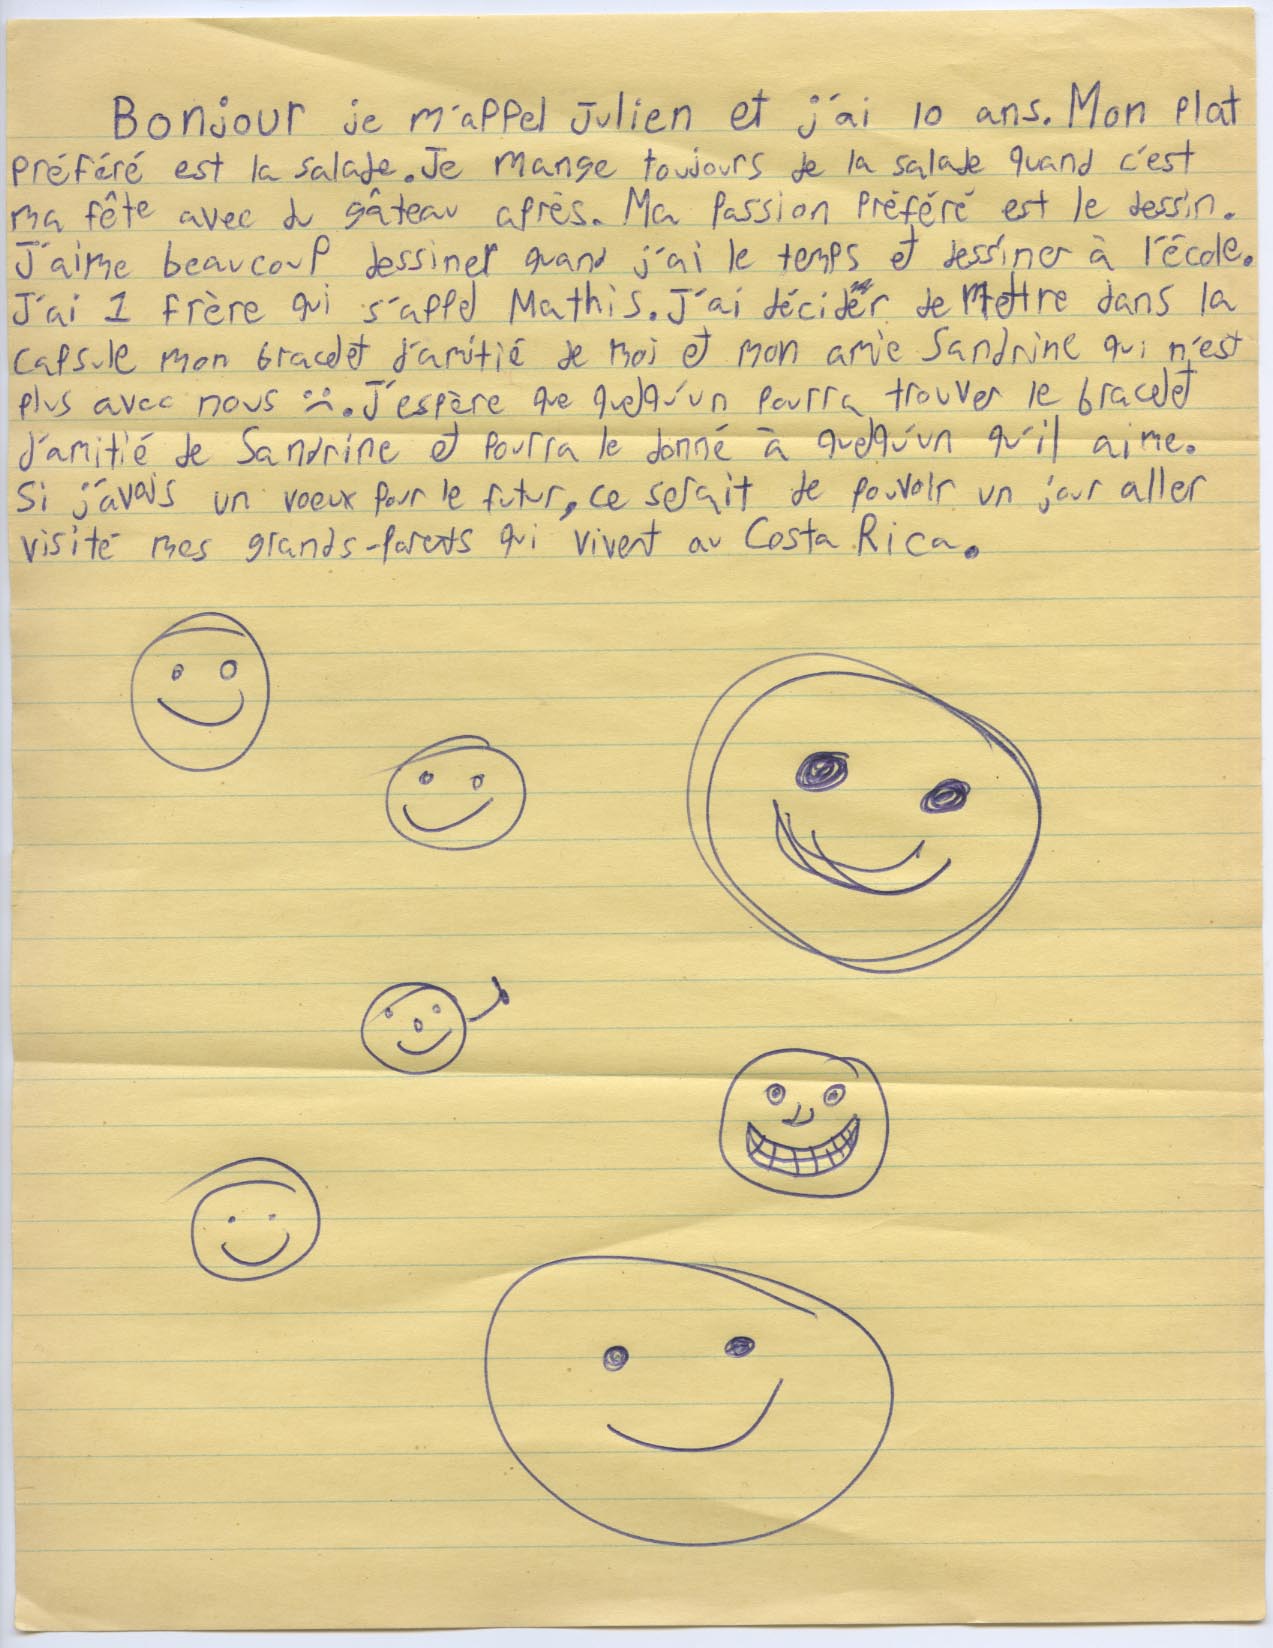 Bonjour je m'appel Julien et j'ai 10 ans. Mon plat
préféré est la salade. Je mange toujours de la salade quand c'est
ma fête avec du gâteau après. Ma passion préféré est le dessin.
J'aime beaucoup dessiner quand j'ai le temps et dessiner à l'école.
J'ai 1 frère qui s'appel Mathis. J'ai décidér de mettre dans la
capsule mon bracelet d'amitié de moi et mon amie Sandrine qui n'est
plus avec nous :(. J'espère que quelqu'un pourra trouver le bracelet
d'amitié de Sandrine et pourra le donné à quelqu'un qu'il aime.
Si j'avais un voeux pour le futur, ce serait de pouvoir un jour aller
visité mes grands-parents qui vivent au Costa Rica.